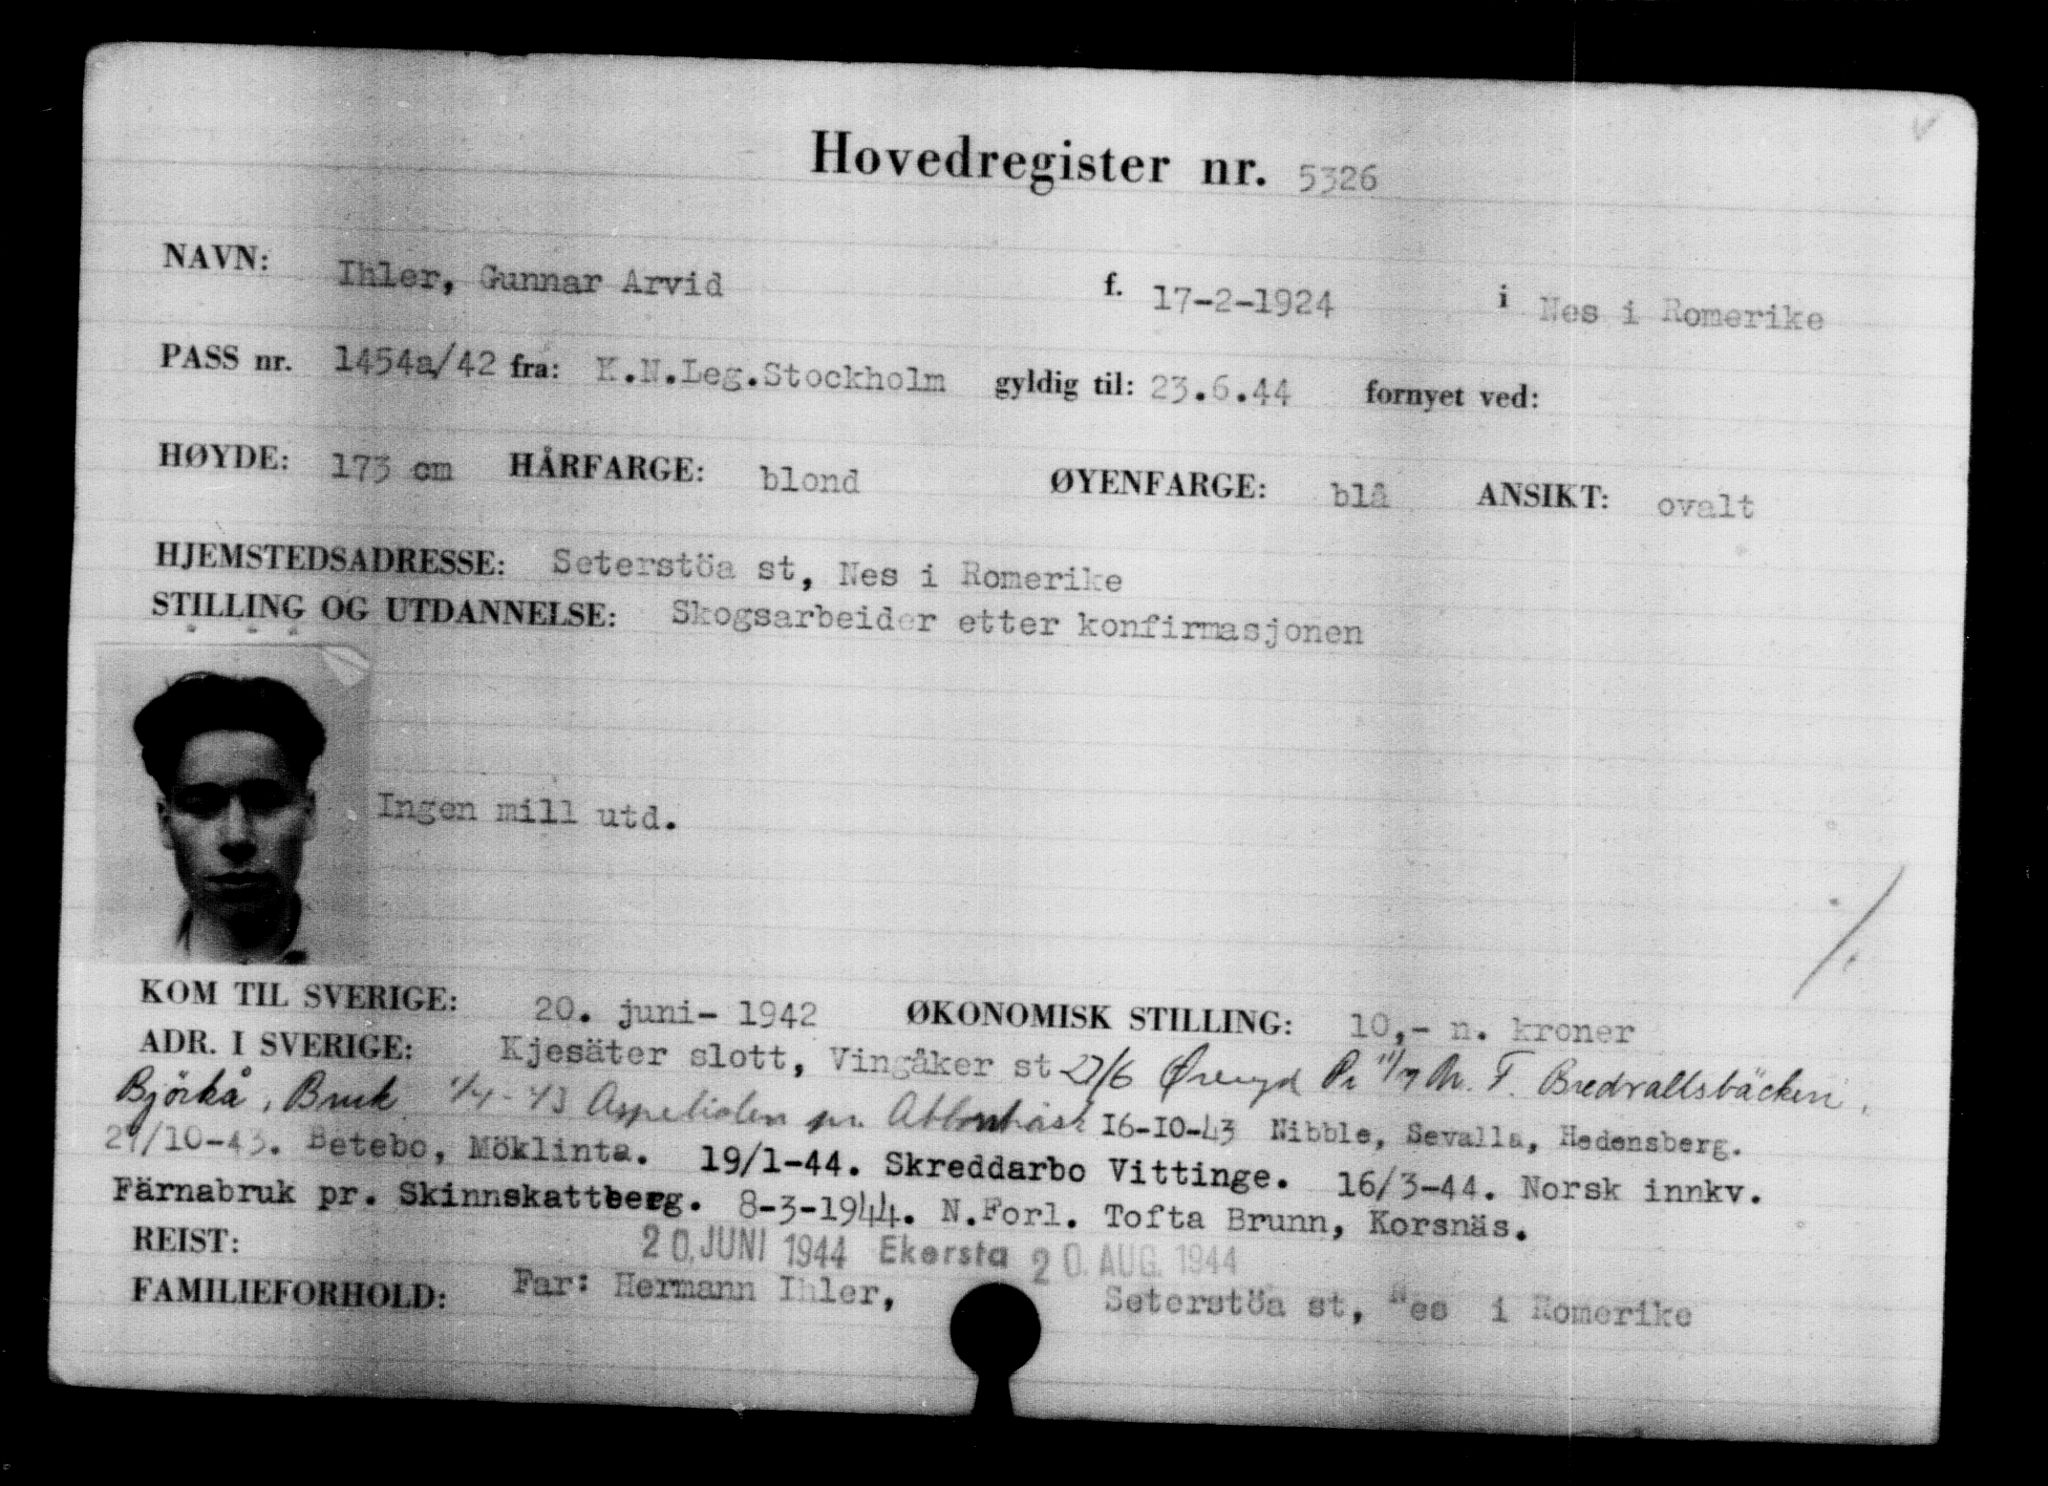 Hovedregister nr. 5326
NAVN: Ihler, Gunnar Arvid f. 17-2-1924 i Nes i Romerike
PASS nr. 1454a/42 fra: K.N.Leg.Stockholm gyldig til: 23.6.44 fornyet ved:
HØYDE: 173 cm HÅRFARGE: blond ØYENFARGE: blå ANSIKT: ovalt
HJEMSTEDSADRESSE: Seterstöa st, Nes i Romerike
STILLING OG UTDANNELSE: Skogsarbeider etter konfirmasjonen
Ingen mill utd.
KOM TIL SVERIGE: 20. juni- 1942 ØKONOMISK STILLING: 10,- n. kroner
ADR. I SVERIGE: Kjesäter slott, Vingåker st 27/6 Öreryd Pr 11/7 T. Bredvallsbäcken,
Björkå, Bruk 1/4-43 16-10-43 Nibble, Sevalla, Hedensberg.
27/10-43. Betebo, Möklinta. 19/1-44. Skreddarbo Vittinge. 16/3-44. Norsk innkv.
Färnabruk pr. Skinnskattberg. 8-3-1944. N.Forl. Tofta Brunn, Korsnäs.
REIST: 20. JUNI 1944 Ekersta 20. AUG. 1944
FAMILIEFORHOLD: Far: Hermann Ihler, Seterstöa st, Nes i Romerike